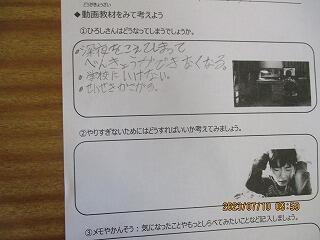 どうがきょうざい
◆動画教材をみて考えよう
①ひろしさんはどうなってしまうでしょうか。
・深夜をこえてしまって
べんきょうができなくなる。
・学校にいけない。
・せいせきがさがる。
②やりすぎないためにはどうすればいいか考えてみましょう。
2023/07/10
③メモやかんそう：気になったことやもっとしらべてみたいことなど記入しましょう。